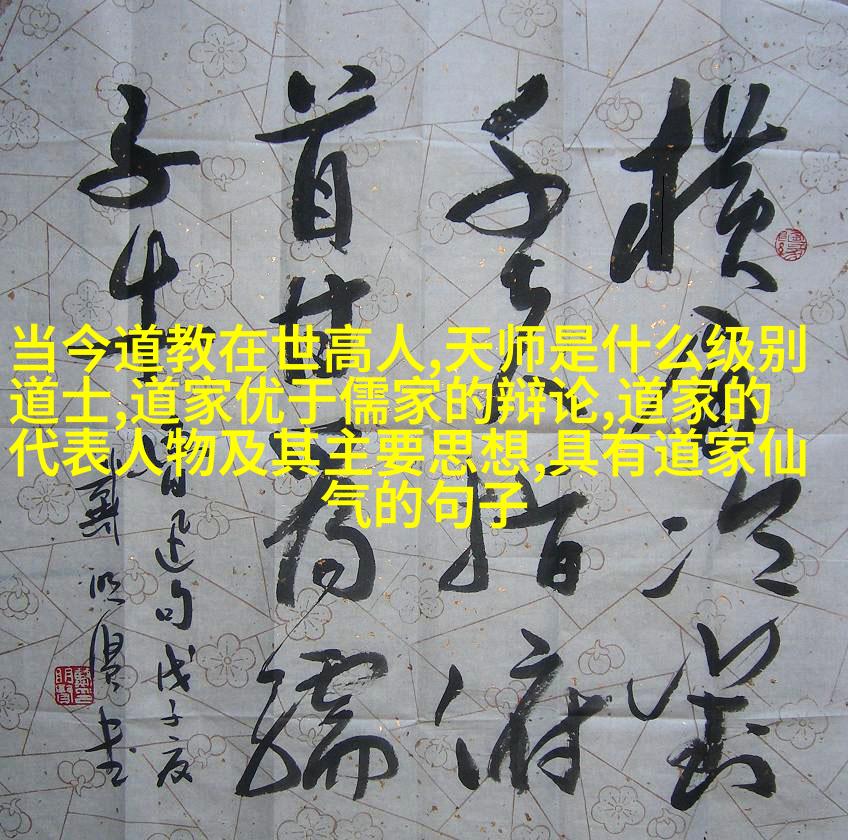 当今道教在世高人,天师是什么级别
道士,道家优于儒家的辩论,道家的
代表人物及其主要思想,具有道家仙
气的句子
横眉冷對
千夫指俯
首甘为孺
子牛
鲁迅句戊子夏